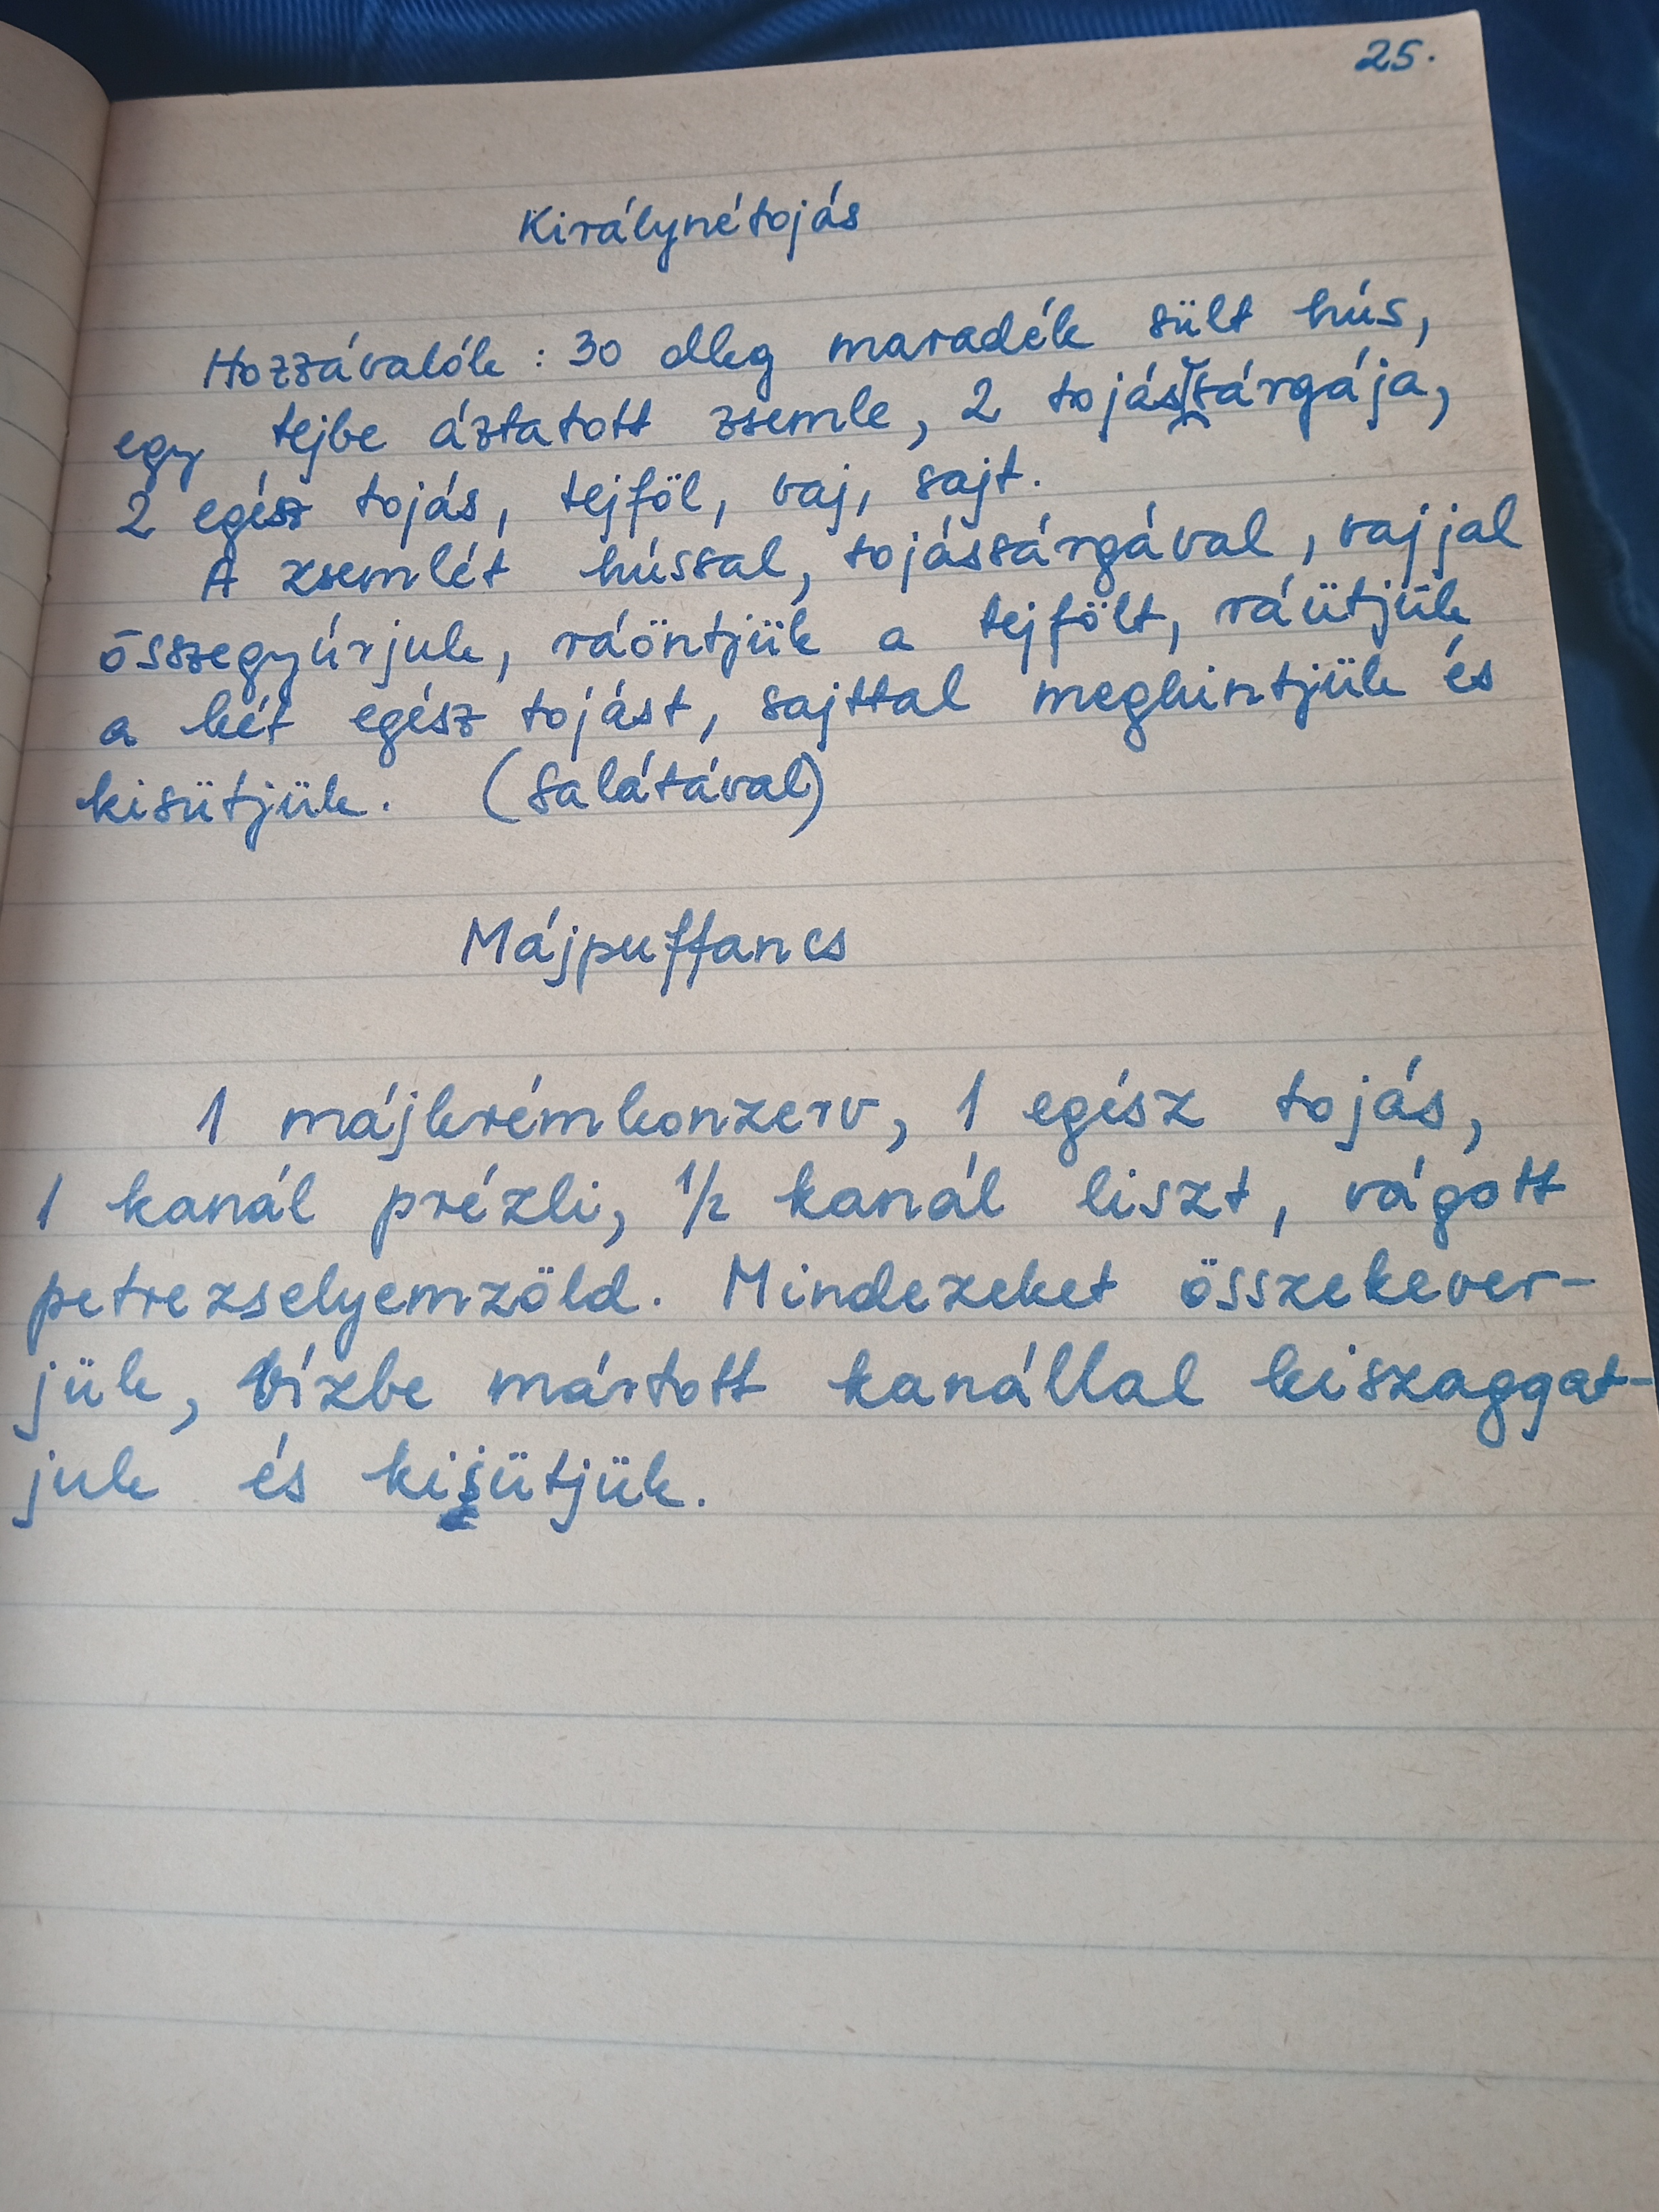 25.
Királynétojás
Hozzávalók: 30 dkg maradék sült hús,
egy tejbe áztatott zsemle, 2 tojás sárgája,
2 egész tojás, tejföl, vaj, sajt.
A zsemlét hússal, tojássárgával, vajjal
összegyúrjuk, ráöntjük a tejfölt, ráütjük
a két egész tojást, sajttal meghintjük és
kisütjük. (Salátával)
Májpuffancs
1 májkrémkonzerv, 1 egész tojás,
1 kanál prézli, 1/2 kanál liszt, vágott
petrezselyemzöld. Mindezeket összekever-
jük, vízbe mártott kanállal kiszaggat-
juk és kisütjük.